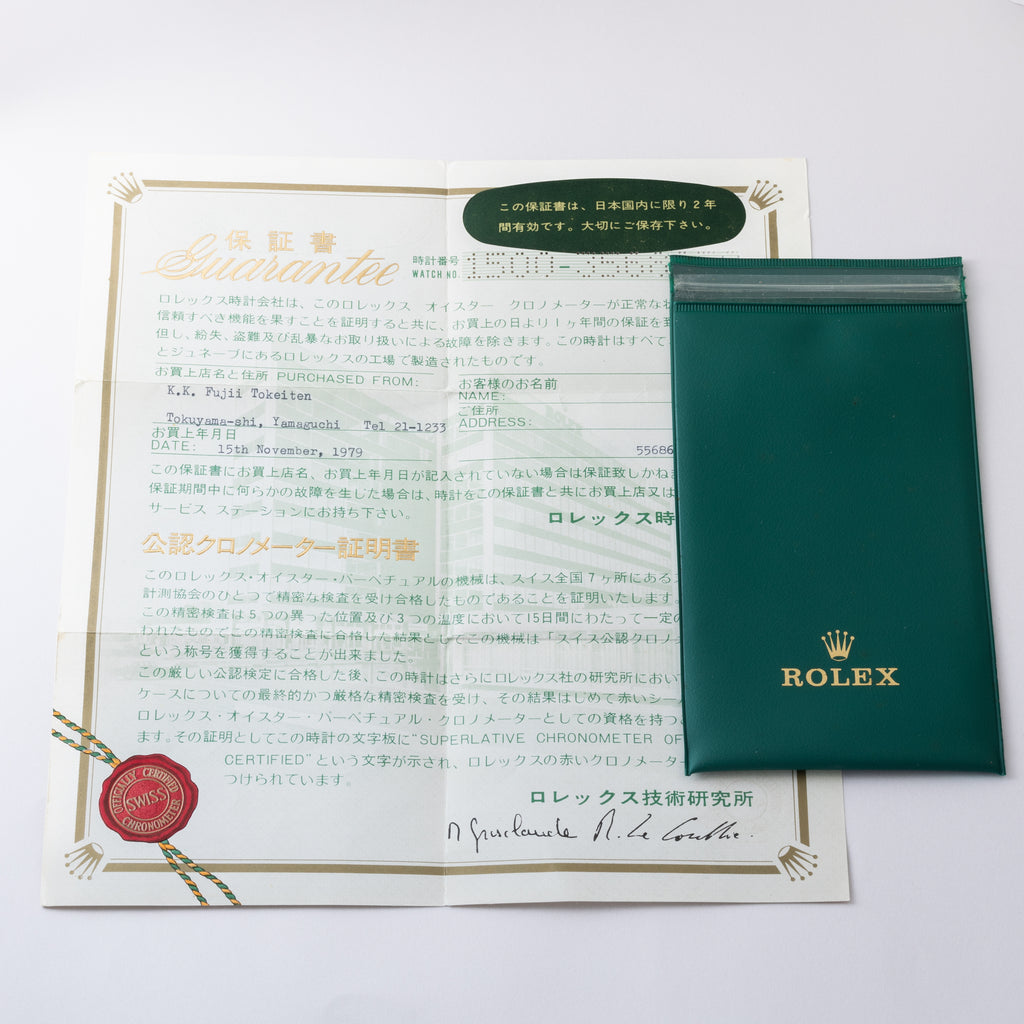 この保証書は、日本国内に限り2年
間有効です。大切にご保存下さい。
保証書
Guarantee
時計番号
WATCH NO.
1500-
ロレックス時計会社は、このロレックス オイスター クロノメーターが正常な
信頼すべき機能を果すことを証明すると共に、お買上の日より1ヶ年間の保証を
但し、紛失、盗難及び乱暴なお取り扱いによる故障を除きます。この時計はすべて
とジュネーブにあるロレックスの工場で製造されたものです。
お買上店名と住所 PURCHASED FROM:
K.K. Fujii Tokeiten
Tokuyama-shi, Yamaguchi Tel 21-1233
お客様のお名前
NAME:
ご住所
ADDRESS:
お買上年月日
DATE: 15th November, 1979
55686
この保証書にお買上店名、お買上年月日が記入されていない場合は保証致しかね
保証期間中に何らかの故障を生じた場合は、時計をこの保証書と共にお買上店又は
サービス ステーションにお持ち下さい。
ロレックス時
公認クロノメーター証明書
このロレックス・オイスター・パーペチュアルの機械は、スイス全国7ヶ所にある
計測協会のひとつで精密な検査を受け合格したものであることを証明いたします。
この精密検査は5つの異った位置及び3つの温度において15日間にわたって一定の
われたものでこの精密検査に合格した結果としてこの機械は「スイス公認クロノ
という称号を獲得することが出来ました。
この厳しい公認検定に合格した後、この時計はさらにロレックス社の研究所におい
ケースについての最終的かつ厳格な精密検査を受け、その結果はじめて赤いシー
ロレックス・オイスター・パーペチュアル・クロノメーターとしての資格を持つ
ます。その証明としてこの時計の文字板に"SUPERLATIVE CHRONOMETER OF
CERTIFIED"という文字が示され、ロレックスの赤いクロノメーター
つけられています。
ロレックス技術研究所
OFFICIALLY CERTIFIED
SWISS
CHRONOMETER
ROLEX